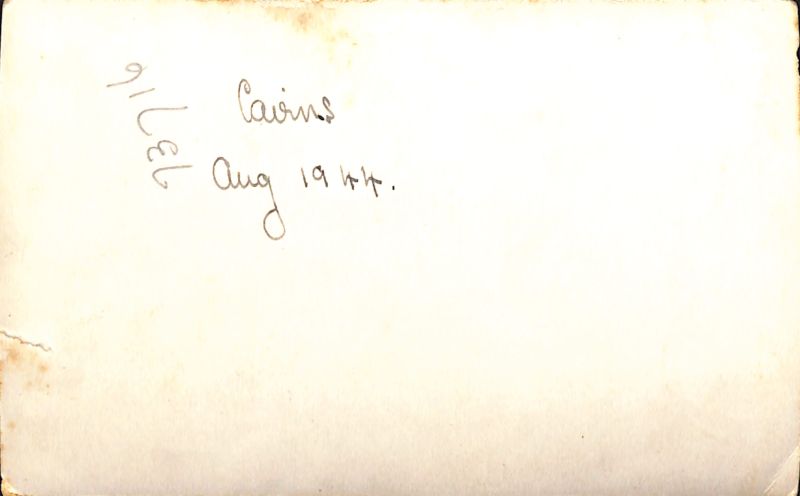 Cairns
Aug 1944.